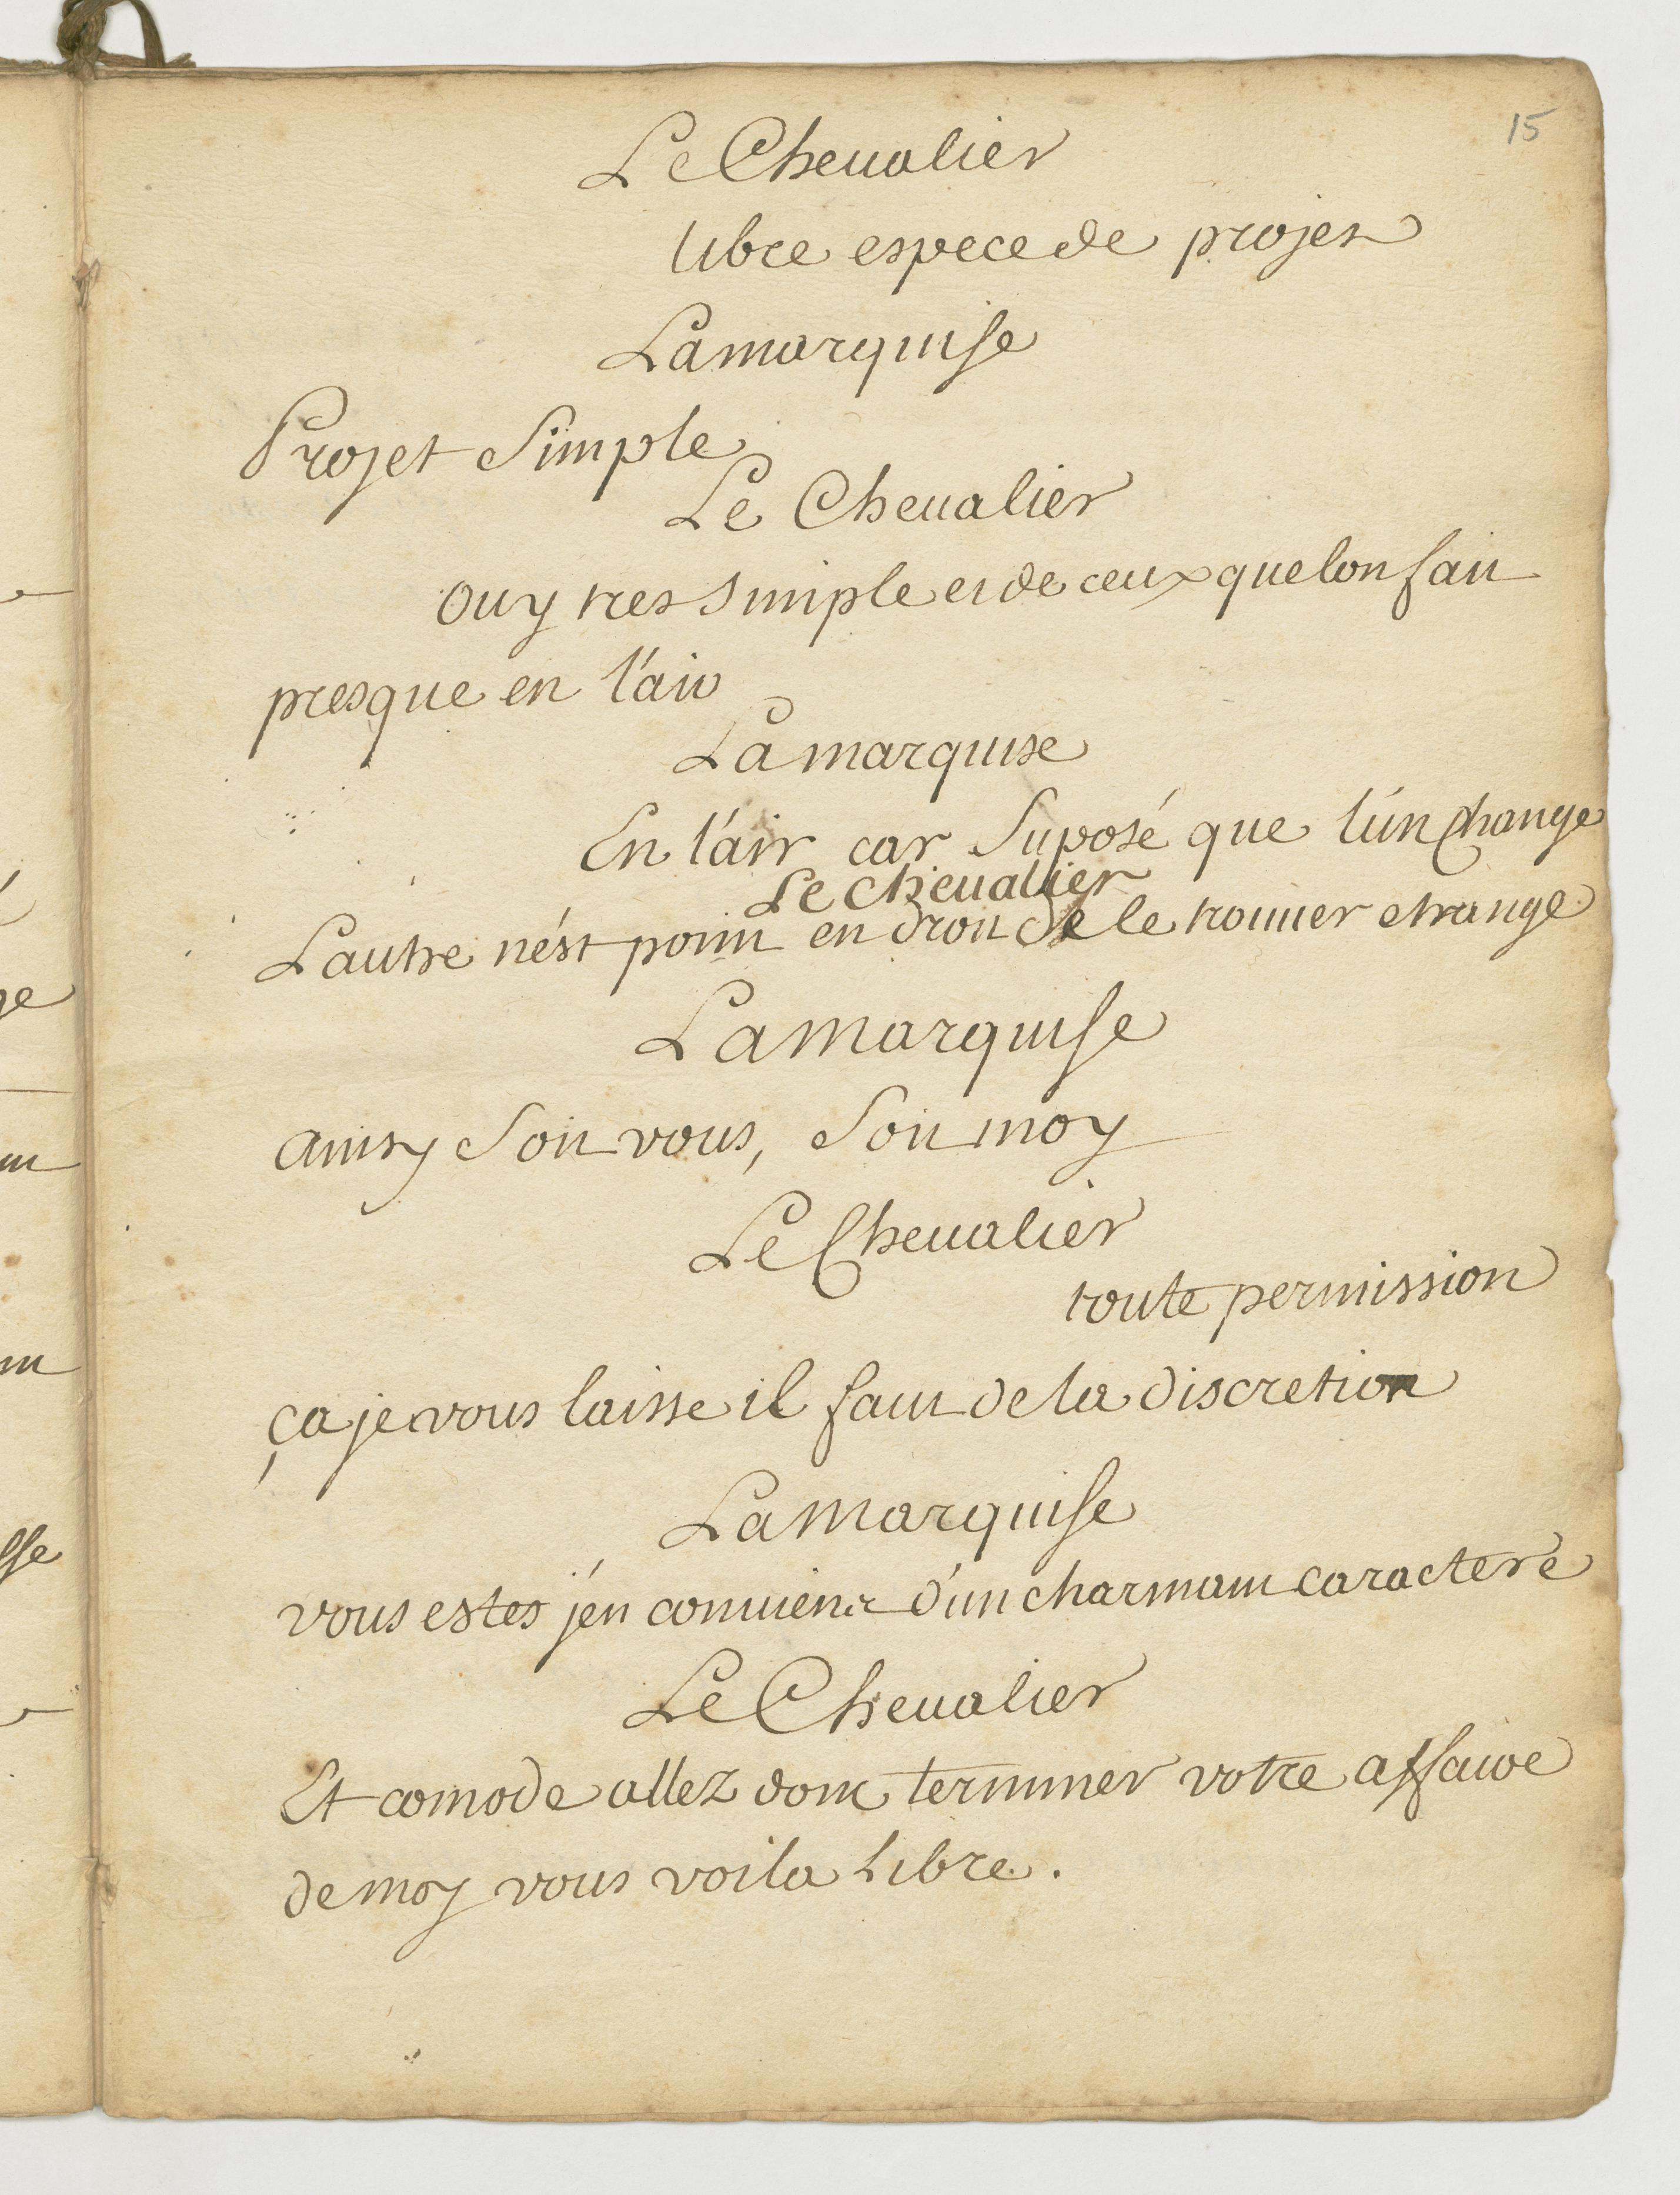 15
Le Cheualier
libre espece de projet
La marquise
Projet Simple
Le Cheualier
ouy tres simple et de ceux que lon fait
presque en l'air
La marquise
En l'air car Suposé que l'un change
Le cheualier
L'autre n'est point en droit de le trouuer etrange
La Marquise
ainsy Soit vous, Soit moy
Le Cheualier
toute permission
ça je vous laisse il faut de la discretion
La Marquise
vous estes j'en conuiens d'un charmant caractere
Le Cheualier
Et comode allez donc terminer votre affaire
de moy vous voila Libre.